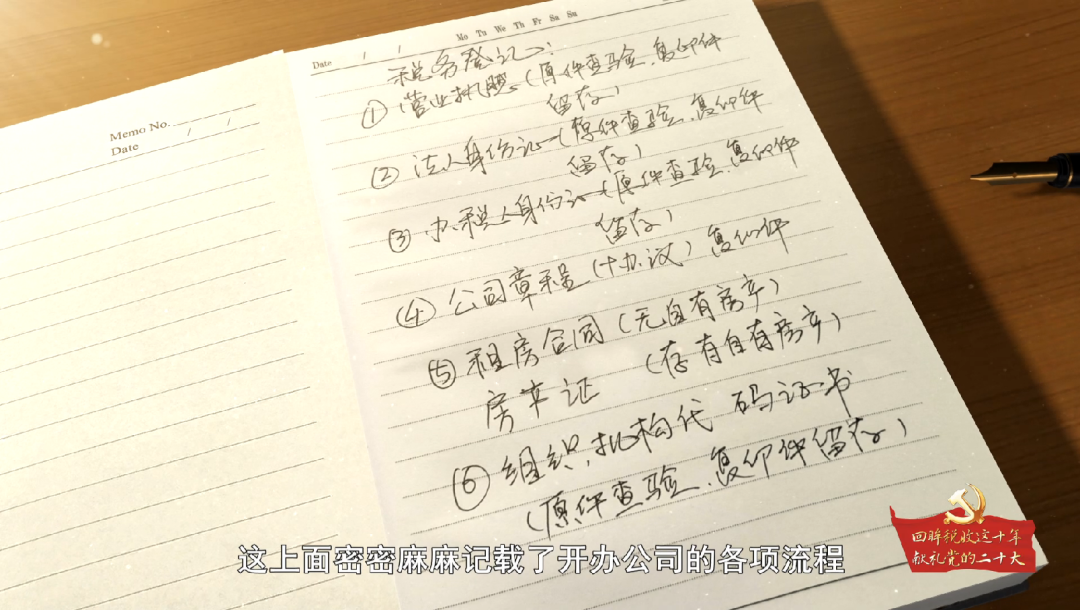 Memo No.
Date / /
Mo Tu We Th Fr Sa Su
Date / /
税务登记：
① 营业执照（原件查验、复印件
留存）
② 法人身份证（原件查验、复印件
留存）
③ 办税人身份证（原件查验、复印件
留存）
④ 公司章程（协议）复印件
⑤ 租房合同（无自有房产）
房产证（存有自有房产）
⑥ 组织机构代码证书
（原件查验、复印件留存）
回眸税收这十年
献礼党的二十大
这上面密密麻麻记载了开办公司的各项流程